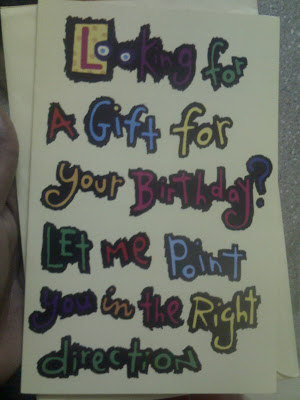 Looking for
A Gift for
your Birthday?
LEt me Point
you in the Right
direction